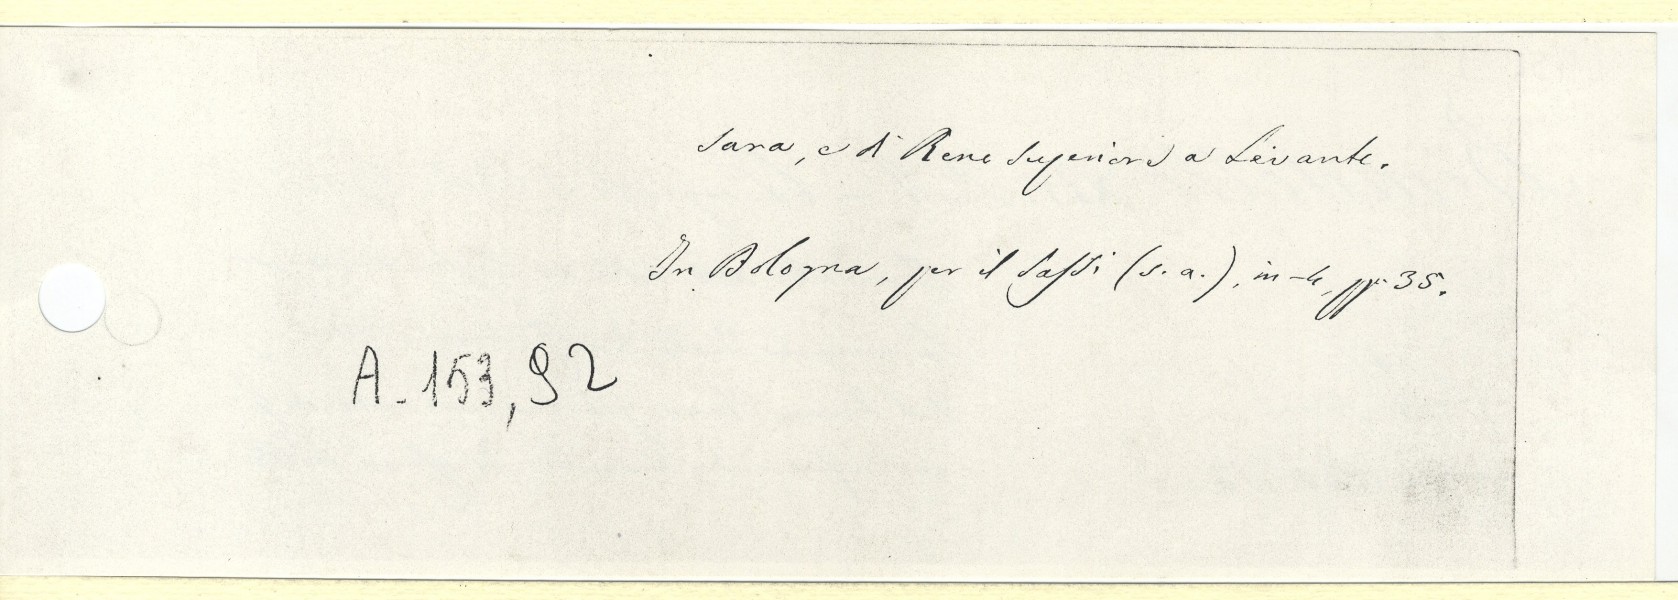 sara, e di Reno Superiore a Levante.
In Bologna, per il Sassi (s. a.), in-4, pp. 35.
A-153, 92